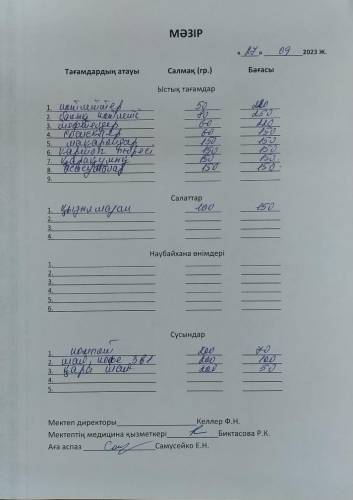 МӘЗІР
« 27 » 09 2023 ж.
Тағамдардың атауы Салмақ (гр.) Бағасы
Ыстық тағамдар
1. котлеттер 50
2. 250
3. тефтелдер 60
4. 60 150
5. макарондар 150 150
6. картоп пюресі 150 150
7. қарақұмық 150 150
8. 150 150
9.
Салаттар
1. қызылшадан 100 150
2.
3.
4.
Наубайхана өнімдері
1.
2.
3.
4.
5.
6.
Сусындар
1. компот 200 70
2. шай, кофе 3в1 200 100
3. қара шай 200 50
4.
5.
Мектеп директоры Келлер Ф.Н.
Мектептің медицина қызметкері Биктасова Р.К.
Аға аспаз Самусейко Е.Н.